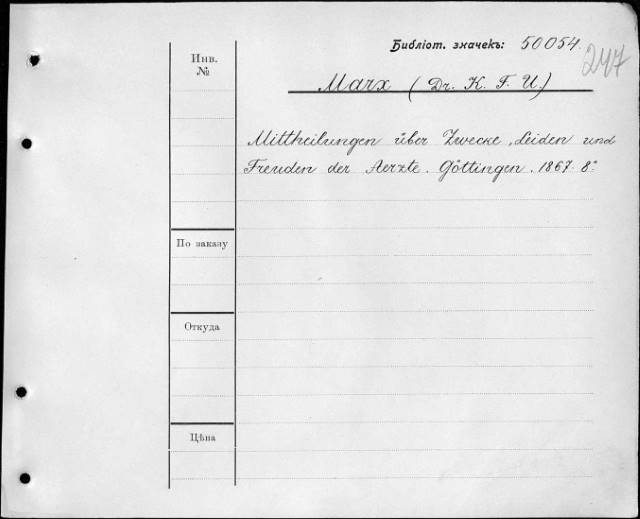 Библіот. значекъ: 50054.
247
Инв.
№
Marx (Dr. K. F. U.)
Mittheilungen über Zwecke, Leiden und
Freuden der Aerzte. Göttingen. 1867. 8°
По заказу
Откуда
Цѣна